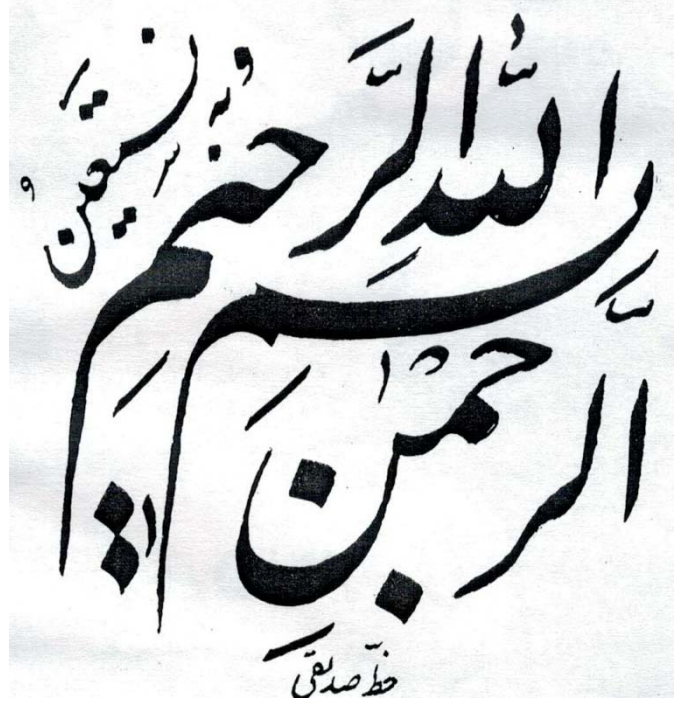 بِسْمِ اللّٰهِ الرَّحْمٰنِ الرَّحِيمِ
وَبِهِ نَسْتَعِينُ
خطّ صدیقی